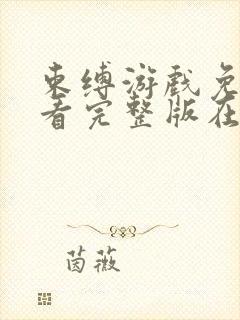 束缚游戏免
看完整版在
茵薇